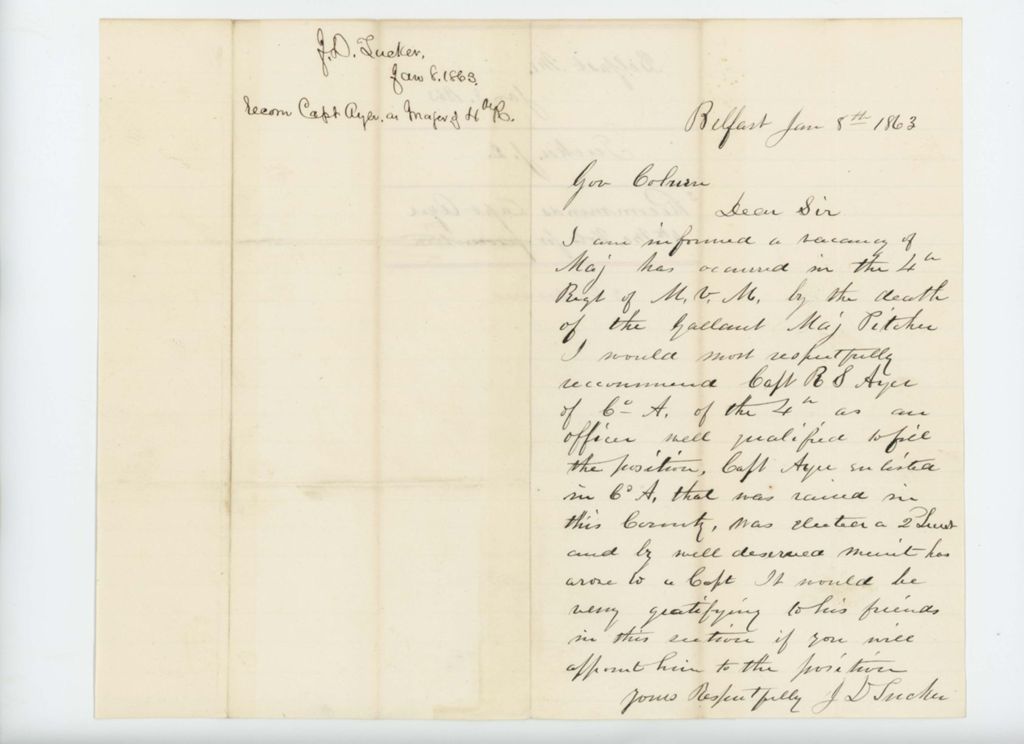 J. D. Tucker,
Jan 8. 1863.
Recom Capt Ayer. as Major of 4th R.
Belfast Jan 8th 1863
Gov Coburn
Dear Sir
I am informed a vacancy of
Maj has occured in the 4th
Regt of M. V. M. by the death
of the gallant Maj Pitcher
I would most respectfully
reccommend Capt R S Ayer
of Co A. of the 4th as an
officer well qualified to fill
the position, Capt Ayer enlisted
in Co A, that was raised in
this County, was elected a 2d Lieut
and by well deserved merit has
arose to a Capt It would be
very gratifying to his friends
in this section if you will
appoint him to the position
yours Respectfully J D Tucker